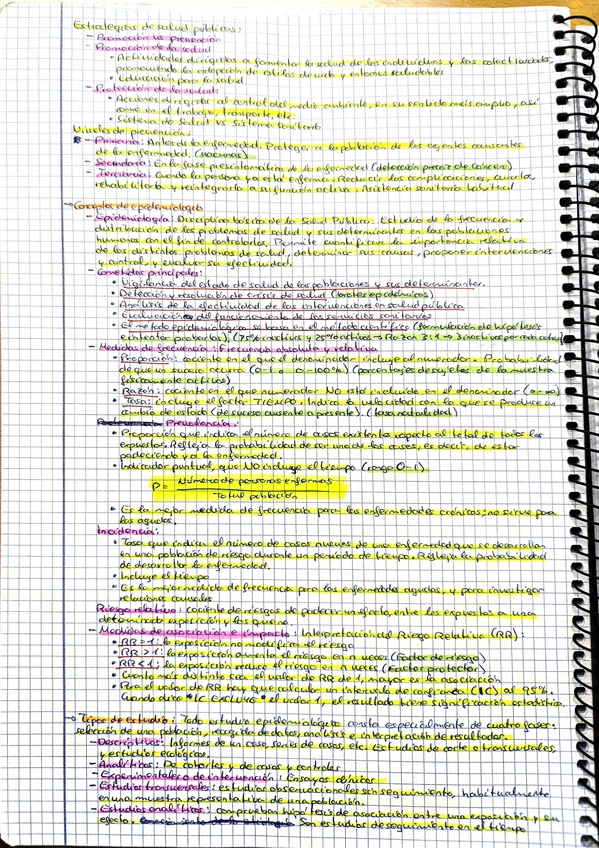 Estrategias de salud públicas:
- Promoción vs prevención
- Promoción de la salud
• Actividades dirigidas a fomentar la salud de los individuos y las colectividades,
promoviendo la adopción de estilos de vida y entornos saludables
• Educación para la salud
- Protección de la salud:
• Acciones dirigidas al control del medio ambiente, en su sentido más amplio, así
como en el trabajo, transporte, etc.
• Sistema de Salud vs Sistema Sanitario
Niveles de prevención:
- Primaria: Antes de la enfermedad. Proteger a la población de los agentes causantes
de la enfermedad. (vacunas)
- Secundaria: En la fase presintomática de la enfermedad (detección precoz de cáncer)
- Terciaria: Cuando la persona ya está enferma. Reducir las complicaciones, curarla,
rehabilitarla y reintegrarla a su función activa. Asistencia sanitaria habitual
→ Conceptos de epidemiología
- Epidemiología: Disciplina básica de la Salud Pública. Estudio de la frecuencia y
distribución de los problemas de salud y sus determinantes en las poblaciones
humanas con el fin de controlarlos. Permite cuantificar la importancia relativa
de los distintos problemas de salud, determinar sus causas, proponer intervenciones
y control, y evaluar su efectividad.
- Cometidos principales:
• Vigilancia del estado de salud de las poblaciones y sus determinantes.
• Detección y resolución de crisis de salud (brotes epidémicos)
• Análisis de la efectividad de las intervenciones en salud pública
• Evaluación del funcionamiento de los servicios sanitarios
• El método epidemiológico se basa en el método científico (formulación de hipótesis
e intentar probarlas) (75% inactivos y 25% activos → Razón 3:1 → 3 inactivos por cada activo)
- Medidas de frecuencia: Frecuencia absoluta y relativa
• Proporción: cociente en el que el denominador incluye al numerador. Probabilidad
de que un suceso ocurra (0-1 ó 0-100%) (porcentajes de sujetos de la muestra
físicamente activos)
• Razón: cociente en el que numerador NO está incluido en el denominador (0-∞)
• Tasa: incluye el factor TIEMPO. Indica la velocidad con la que se produce un
cambio de estado (de suceso ausente a presente). (tasa natalidad)
Prevalencia:
• Proporción que indica el número de casos existentes respecto al total de todos los
expuestos. Refleja la probabilidad de ser uno de los casos, es decir, de estar
padeciendo ya la enfermedad.
• Indicador puntual, que NO incluye el tiempo (rango 0-1).
P = Número de personas enfermas
Total población
• Es la mejor medida de frecuencia para las enfermedades crónicas; no sirve para
las agudas.
Incidencia:
• Tasa que indica el número de casos nuevos de una enfermedad que se desarrollan
en una población de riesgo durante un periodo de tiempo. Refleja la probabilidad
de desarrollar la enfermedad.
• Incluye el tiempo
• Es la mejor medida de frecuencia para las enfermedades agudas, y para investigar
relaciones causales
Riesgo relativo: cociente de riesgos de padecer un efecto, entre los expuestos a una
determinada exposición y los que no.
- Medidas de asociación e impacto: Interpretación del Riesgo Relativo (RR):
• RR=1: la exposición no modifica el riesgo
• RR>1: la exposición aumenta el riesgo en n veces (Factor de riesgo)
• RR<1: la exposición reduce el riesgo en n veces (Factor protector)
• Cuanto más distinto sea el valor de RR de 1, mayor es la asociación
• Para el valor de RR hay que calcular un intervalo de confianza (IC) al 95%.
Cuando dicho "IC EXCLUYE" el valor 1, el resultado tiene significación estadística.
→ Tipos de estudio: Todo estudio epidemiológico consta especialmente de cuatro fases:
selección de una población, recogida de datos, análisis e interpretación de resultados.
- Descriptivos: Informes de un caso, series de casos, etc. Estudios de corte o transversales,
y estudios ecológicos.
- Analíticos: De cohortes y de casos y controles
- Experimentales o de intervención: Ensayos clínicos
- Estudios transversales: estudios observacionales sin seguimiento, habitualmente
en una muestra representativa de una población.
- Estudios analíticos: Comprueban hipótesis de asociación entre una exposición y su
efecto. Son estudios de seguimiento en el tiempo